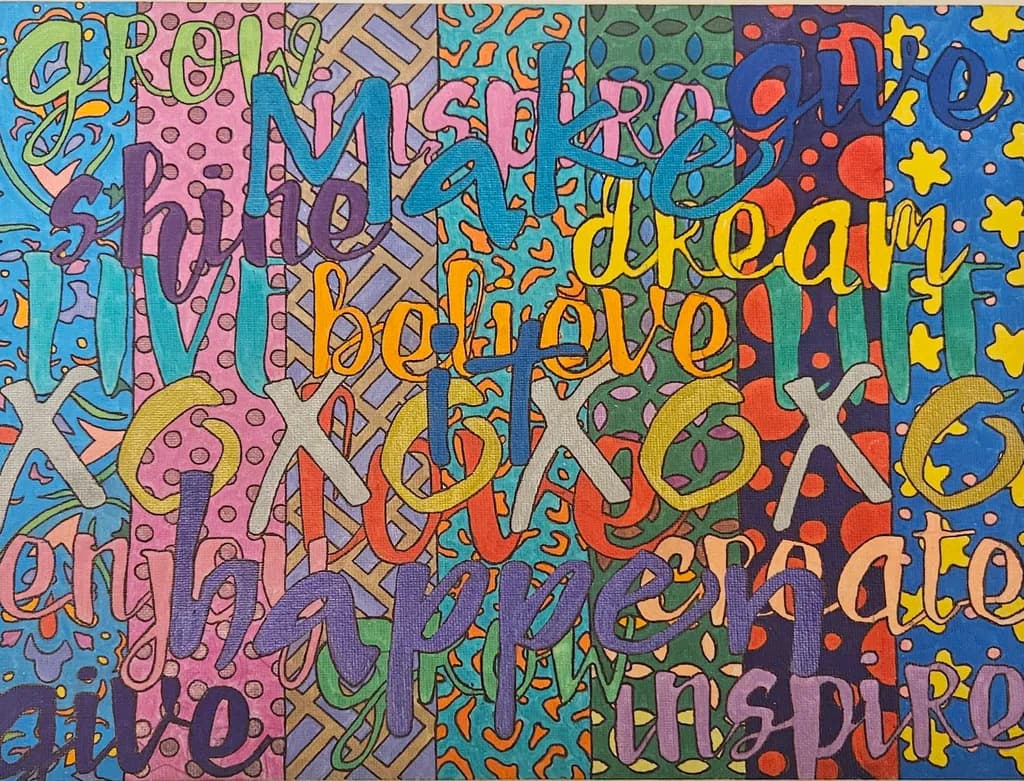 grow inspire give
Make
shine dream
LIVE believe LIFE
it
XOXOXOXO
love
enjoy create
happen
grow
give inspire